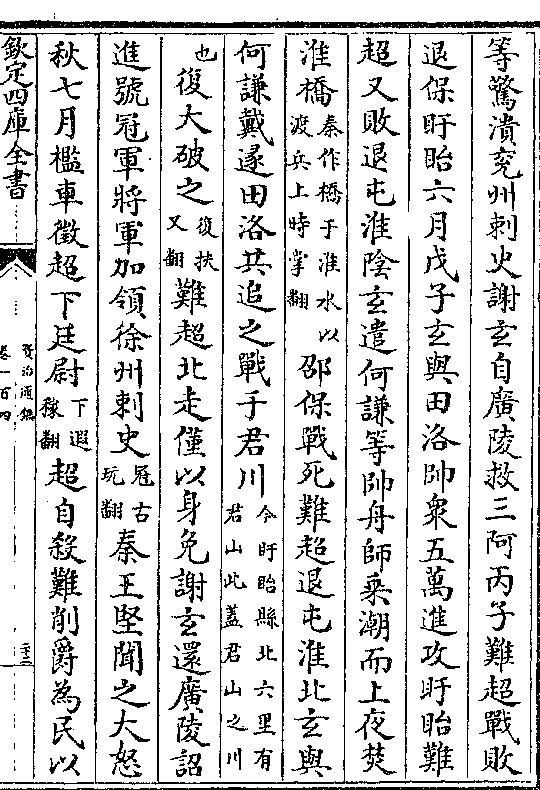 等驚潰兖州刺史謝玄自廣陵救三阿丙子難超戰敗
退保盱眙六月戊子玄與田洛帥衆五萬進攻盱眙難
超又敗退屯淮隂玄遣何謙等帥舟師乗潮而上夜焚
淮橋秦作橋于淮水以渡兵上時掌翻邵保戰死難超退屯淮北玄與
何謙戴遂田洛共追之戰于君川今盱眙縣北六里有君山此蓋君山之川
也復大破之復扶又翻難超北走僅以身免謝玄還廣陵詔
進號冠軍將軍加領徐州刺史冠古玩翻秦王堅聞之大怒
秋七月檻車徵超下廷尉下遐稼翻超自殺難削爵為民以
欽定四庫全書
資治通鑑
卷一百四
二十二